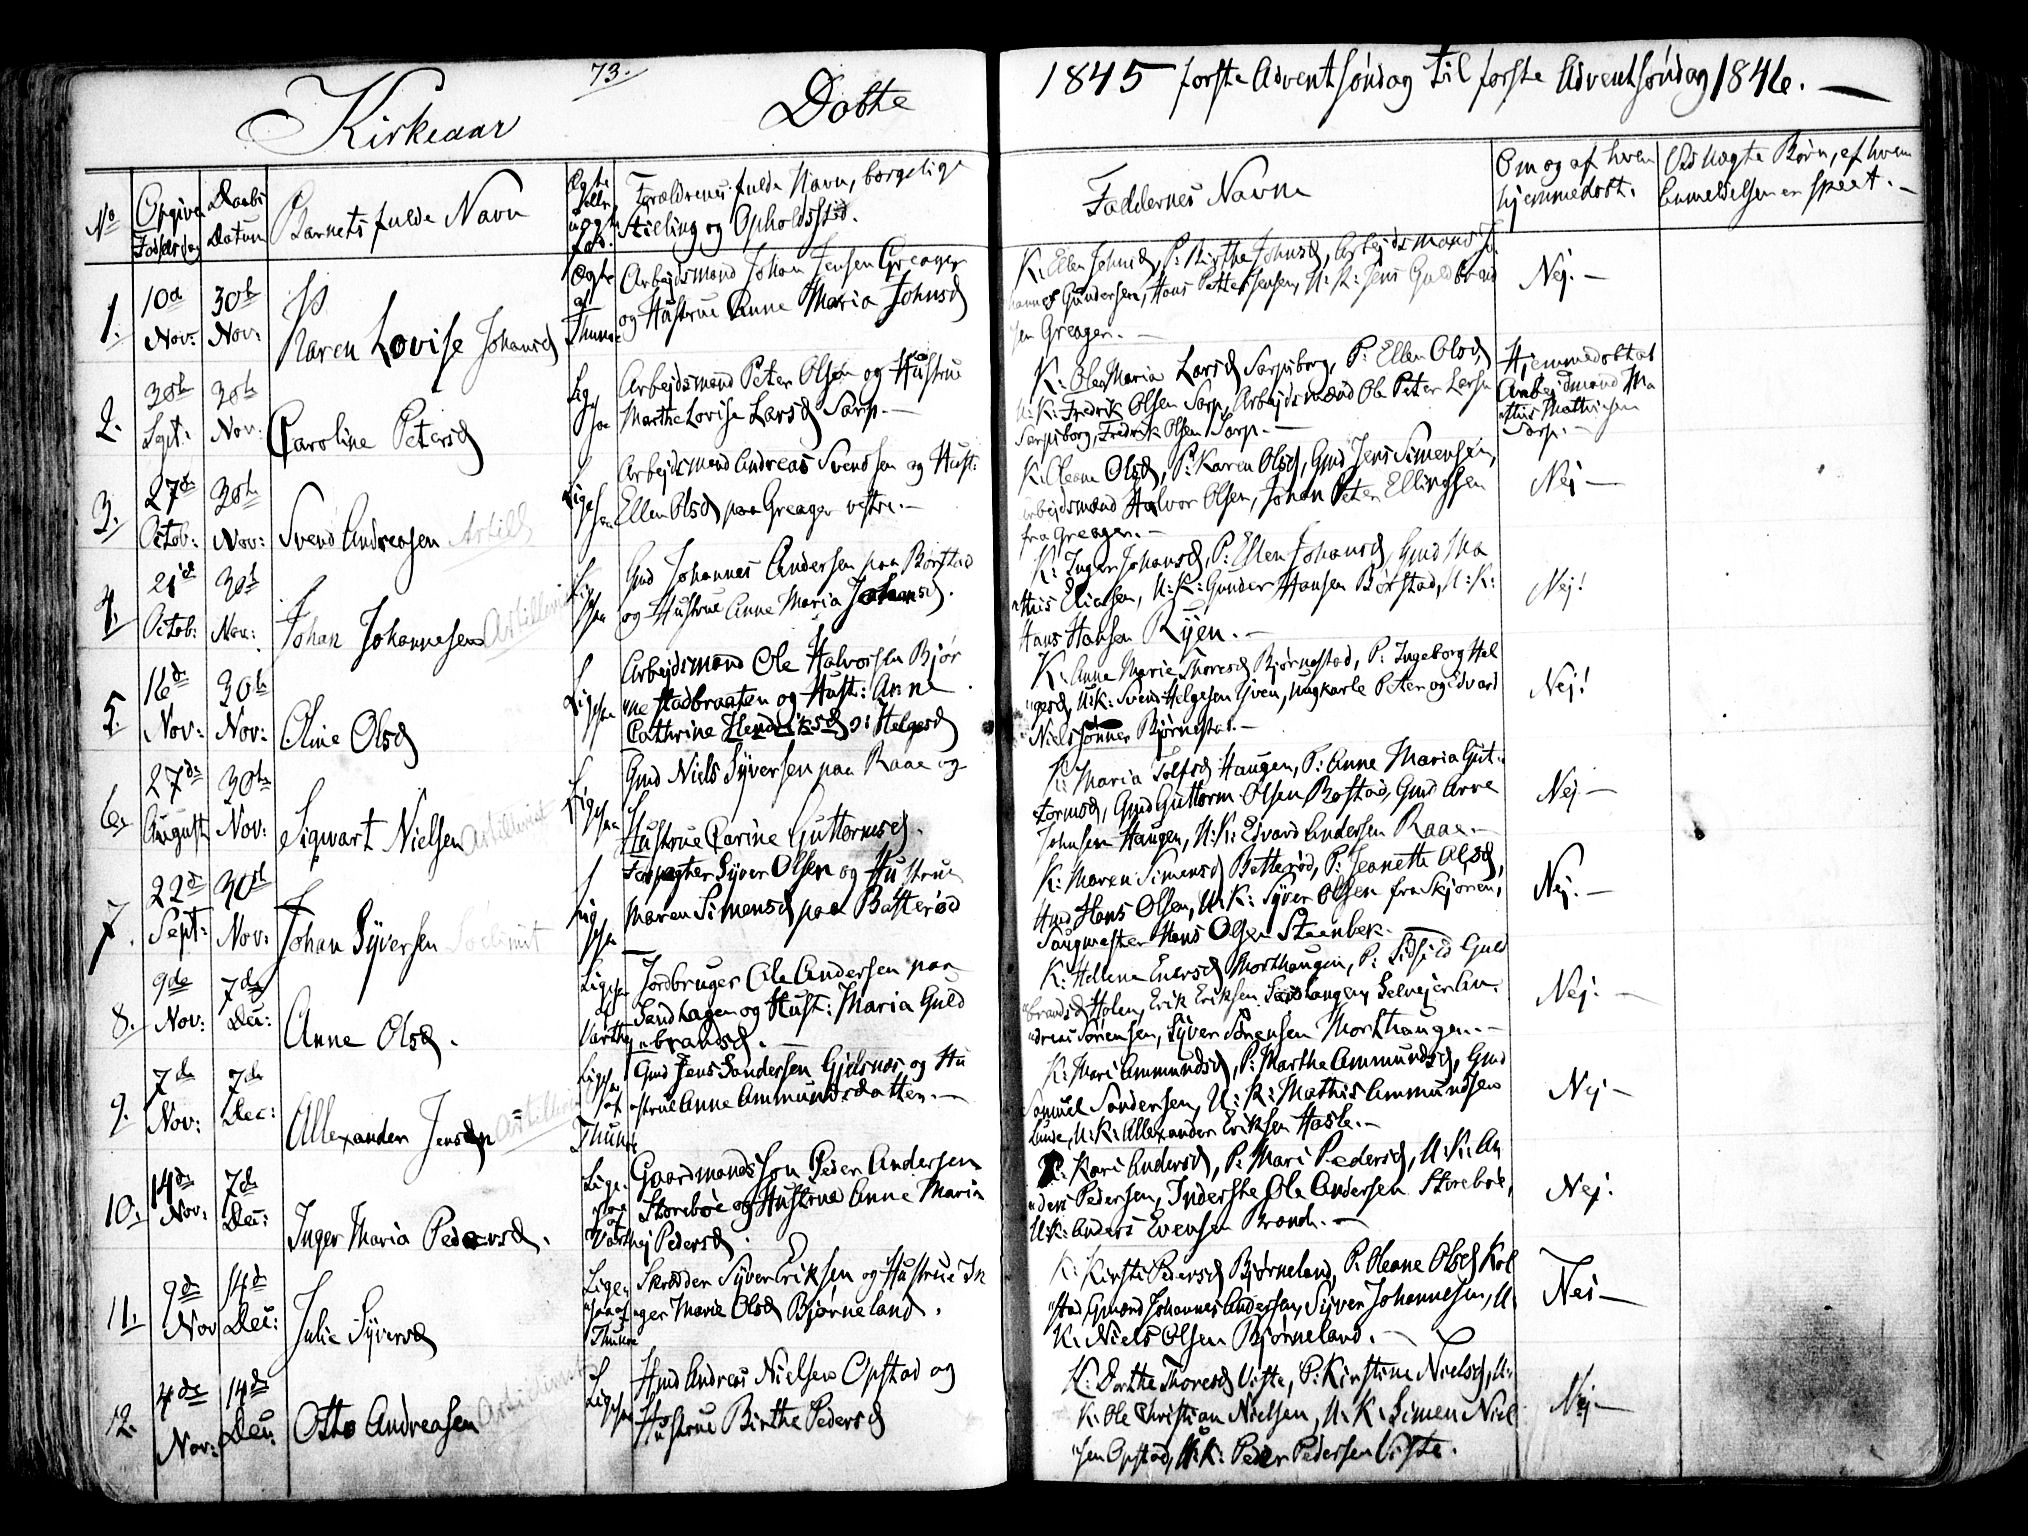 73.
Kirkeaar Døbte
1845 første Adventsøndag til første Adventsøndag 1846. —
No
Opgiven Fødselsdag
Daabs Datum
Barnets fulde Navn
Ægte eller uægte
Forældrenes fulde Navn, borgelige
Stilling og Opholdssted.
Faddernes Navne
Om og af hvem
hjemmedøbt.
Ved uægte Børn, af hvem
Anmeldelsen er skeet. —
1.
10d Nov:
30te Nov:
Karen Lovise Johansd
Ægte af Thune
Arbejdsmand Johan Jensen Greager
og Hustrue Anne Maria Johnsd
K: Ellen Johnsd, P: Birthe Johnsd, Arbejdsmand Jo
hannes Gundersen, Hans Pettersensen, U: K: Jens Guldbrand
sen Greager. —
Nej. —
2.
30te Sept:
30te Nov:
Caroline Petersd
Ligesaa
Arbejdsmand Peter Olsen og Hustrue
Marthe Lovise Larsd Sarp. —
K: Olea Maria Larsd Sarpsborg, P: Ellen Olsd,
U: K: Fredrik Olsen Sarp, Arbejdsmænd Ole Peter Larsen
Sarpsborg, Fredrik Olsen Sarp. —
Hjemmedøbt af
Arbejdmand Ma
this Mathiesen
Sarp. —
3.
27de Octob:
30te Nov:
Svend Andreasen Artill
Ligesaa
Arbejdsmand Andreas Svendsen og Hust:
Ellen Olsd paa Greager vestre. —
K: Oleane Olsd, P: Karen Olsd, Gmd Jens Simensen,
Arbejdsmænd Halvor Olsen, Johan Peter Ellingsen
fra Greager. —
Nej —
4.
21de Octob:
30te Nov:
Johan Johannesen Artillerist
Ligesaa
Gmd Johannes Andersen paa Børstad
og Hustrue Anne Maria Johansd.
K: Inger Johansd, P: Ellen Johansd, Gmd Ma
this Eliasen, U: K: Gunder Hansen Børstad, U: K:
Hans Hansen Ryen. —
Nej!
5.
16de Nov:
30te Nov:
Oline Olsd
Ligesaa
Arbejdsmand Ole Halvorsen Bjør
nestadbraaten og Hust: Anne
Cathrine Hendriksd o: Helgesd
K: Anne Marie Thoresd Bjørnestad, P: Ingeborg Hel
gesd, U: K: Svend Helgesen Even, Ungkarle Peter og Edvard
Niels sønner Bjørnestad. —
Nej!
6.
27de August
30te Nov:
Sigvart Nielsen Artillerist
Ligesaa
Gmd Niels Syversen paa Raae og
Hustrue Carine Guttormsd.
K: Maria Tolfsd Haugen, P: Anne Maria Gut:
tormsd, Gmd Guttorm Olsen Bøstad, Gmd Arne
Johnsen Haugen, U: K: Edvard Andersen Raae. —
Nej —
7.
22de Sept:
30te Nov:
Johan Syversen
Ligesaa
Forpagter Syver Olsen og Hustrue
Maren Simensd paa Batterød
K: Maren Simensd Batterød, P: Jeanette Olsd,
Hmd Hans Olsen, U: K: Syver Olsen fra Skjøren,
Saugmester Hans Olsen Steenbek. —
Nej. —
8.
9de Nov:
7de Dec:
Anne Olsd.
Ligesaa af Varthej
Jordbruger Ole Andersen paa
Sandhagen og Hust: Maria Guld
brandsd. —
K: Hellene Enersd Morthaugen, P: Lidsild Guld
brandsd Holen, Erik Eriksen Sandhaugen, Selvejer An
dreas Sørensen, Syver Sørensen Morthaugen. —
Nej. —
9.
7de Nov:
7de Dec:
Allexander Jensen Artillerist
Ligesaa af Thune
Gmd Jens Sandersen Gjelsnes og Hu
strue Anne Ammundsdatter. —
K: Mari Ammundsd, P: Marthe Ammundsd, Gmd
Samuel Sandersen, U: K: Mathis Ammundsen
Lunde, U: K: Allexander Eriksen Hasle. —
Nej —
10.
14de Nov:
7de Dec:
Inger Maria Pedersd.
Ligesaa af Varthej
Gaardmandssøn Peder Andersen
Storebøe og Hustrue Anne Maria
Pedersd.
K: Kari Andersd, P: Mari Pedersd, U: K: An
ders Pedersen, Inderste Ole Andersen Storebøe,
U: K: Anders Evensen Brond. —
Nej.
11.
9de Nov
14de Dec:
Julie Syversd
Ligesaa af Thune
Skrædder Syver Eriksen og Hustrue In
ger Marie Olsd Bjørneland.
K: Kirsti Pedersd Bjørneland, P: Oleane Olsd Kol
stad, Gmænd Johannes Andersen, Syver Johannesen, U.
K. Niels Olsen Bjørneland. —
Nei —
12.
4de Nov:
14de Dec:
Otto Andreasen
Ligesaa
Hmd Andreas Nielsen Opstad og
Hustrue Birthe Pedersd
K: Dorthe Thoresd Viste, P: Kirstine Nielsd, U:
K: Ole Christian Nielsen, U: K: Simen Niel
sen Opstad, U: K: Peder Pedersen Viste.
Nej —